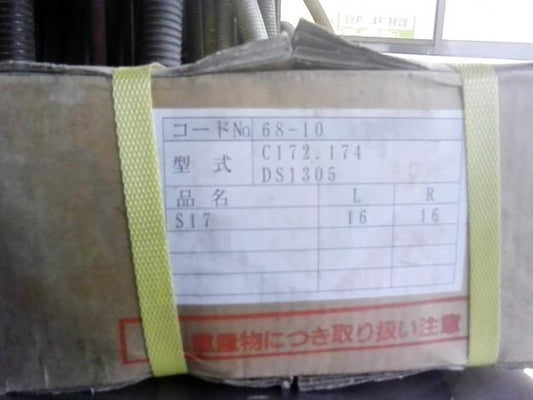 コードNo. 68-10
型式 C172.174
DS1305
品名 L R
S17 16 16
重量物につき取り扱い注意